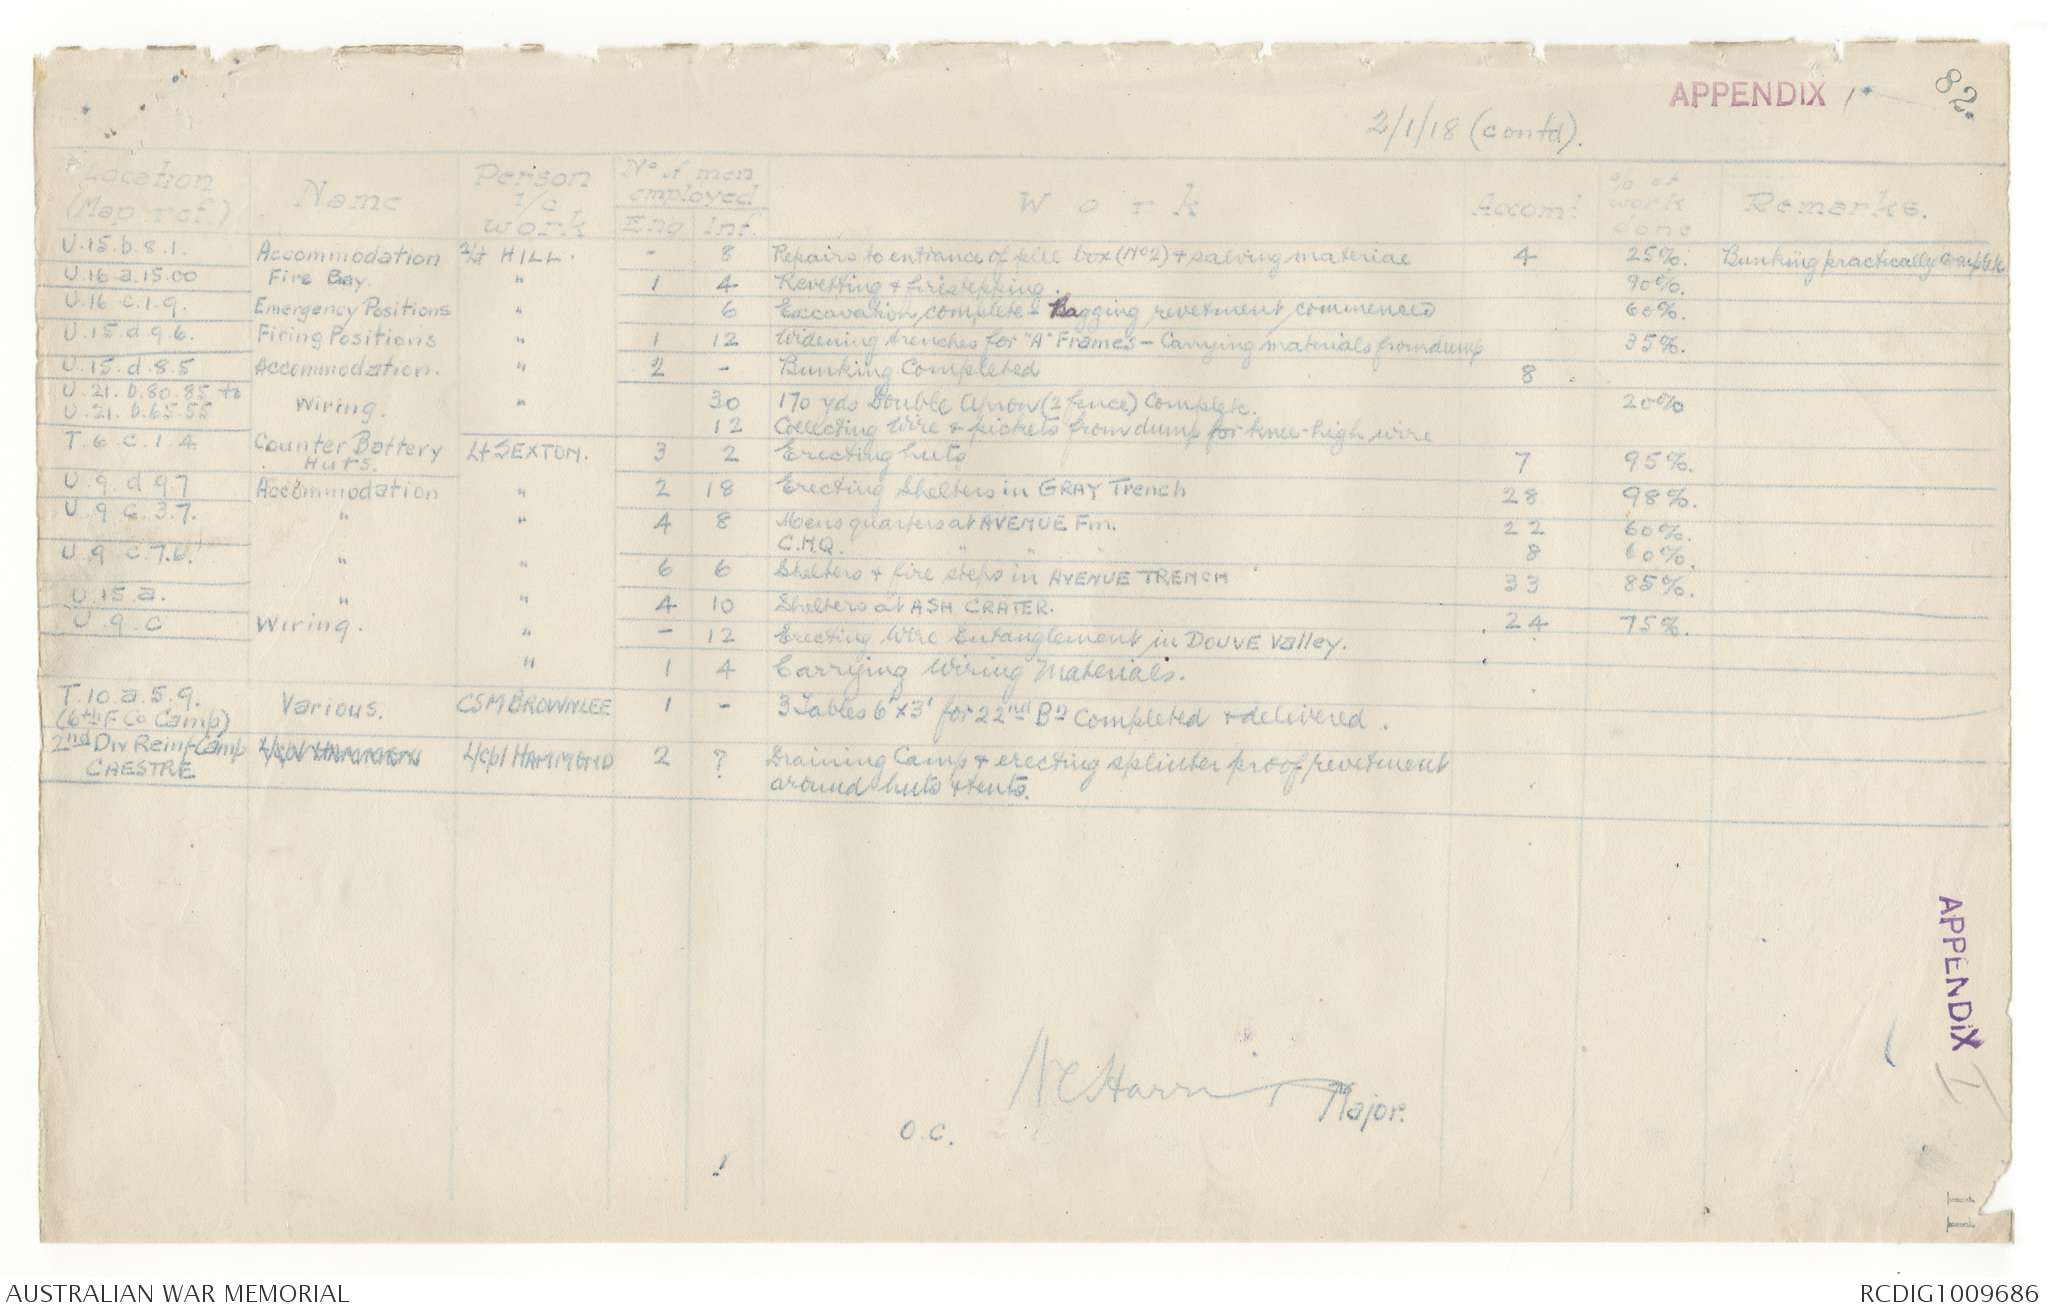 APPENDIX 1
82.
2/1/18 (contd).
Location (Map ref.) Name Person I/C work No of men employed Eng Inf. Work Accomt % of work done Remarks.
U.15.b.8.1. Accommodation 2/Lt HILL. - 8 Repairs to entrance of pill box (No 2) & salving material 4 25%. Bunking practically complete
U.16.a.15.00 Fire Bay. " 1 4 Revetting & firestepping. 90%.
U.16.c.1.9. Emergency Positions " 6 Excavation complete - Bagging revetment commenced 60%.
U.15.d.9.6. Firing Positions " 1 12 Widening trenches for "A" Frames - Carrying materials from dump 35%.
U.15.d.8.5 Accommodation. " 2 - Bunking Completed 8
U.21.b.80.85 to
U.21.b.65.55 Wiring. " 30 170 yds Double Apron (2 fence) Complete. 20%
12 Collecting Wire & pickets from dump for knee-high wire
T.6.c.1.4 Counter Battery Huts. Lt SEXTON. 3 2 Erecting huts 7 95%.
U.9.d.9.7 Accommodation " 2 18 Erecting Shelters in GRAY Trench 28 98%.
U.9.c.3.7. " " 4 8 Mens quarters at AVENUE Fm. 22 60%.
C.HQ. " " " 8 60%.
U.9.c.7.6. " " 6 6 Shelters & fire steps in AVENUE TRENCH 33 85%.
U.15.a. " " 4 10 Shelters at ASH CRATER. 24 75%.
U.9.c Wiring. " - 12 Erecting Wire Entanglement in DOUVE Valley.
" 1 4 Carrying Wiring Materials.
T.10.a.5.9.
(6th F Co Camp) Various. CSM BROWNLEE 1 - 3 Tables 6' x 3' for 22nd Bn Completed & delivered.
2nd Div Reinf Camp
CAESTRE L/Cpl HAMMOND 2 ? Draining Camp & erecting splinter proof revetment
around huts & tents.
Major.
O.C.
APPENDIX I
11
AUSTRALIAN WAR MEMORIAL
RCDIG1009686